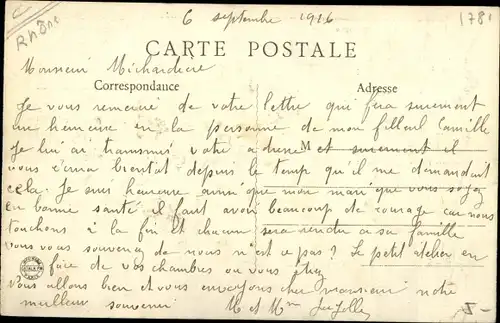 6 septembre 1916
1781
CARTE POSTALE
Monsieur
Correspondance
Adresse
Je vous remercie de votre lettre qui fera surement
un heureuse en la personne de mon filleul Camille
Je lui ai transmis votre adresse et surement il
vous écrira bientot depuis le temps qu'il me demandait
cela. Je suis heureuse ainsi que mon mari que vous soyez
en bonne santé il faut avoir beaucoup de courage car nous
touchons à la fin et chacun sera rendu à sa famille
vous vous souvenez de nous n'est ce pas? Le petit atelier en
face de vos chambres ou vous
Vous allons bien et vous envoyons cher monsieur notre
meilleur souvenir M et Mme